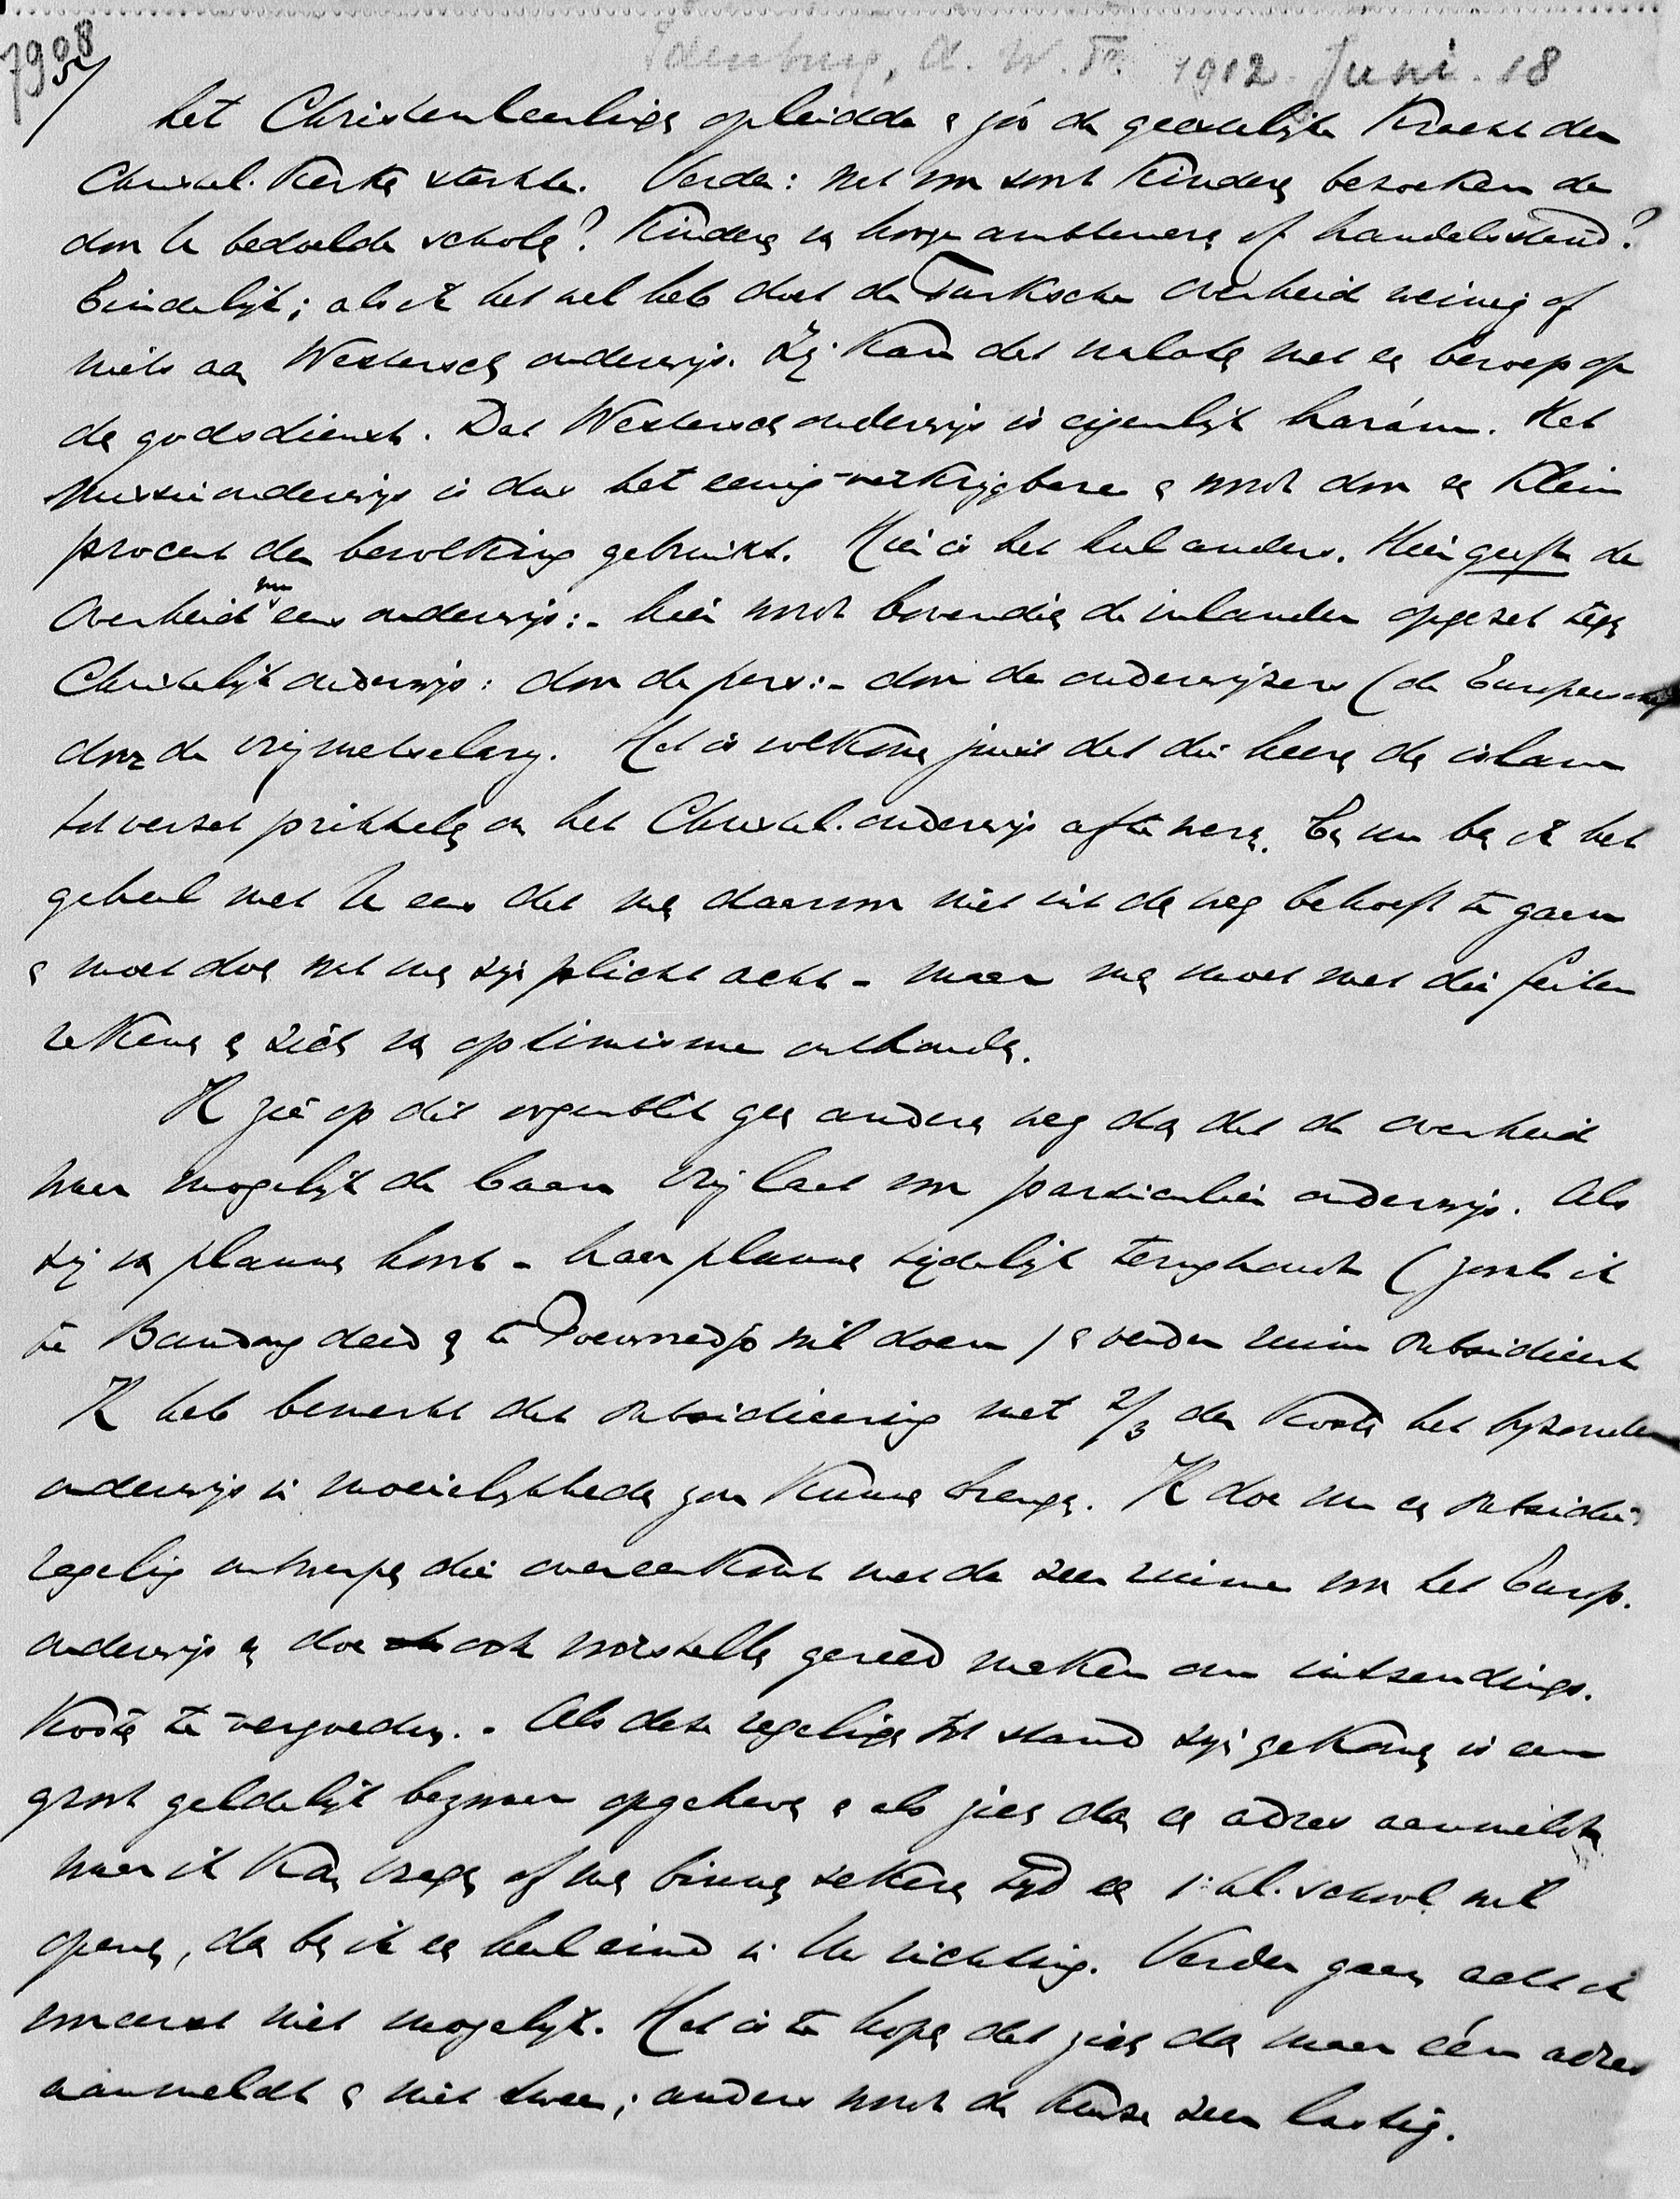 7998
5/
Idenburg, A. W. Fr. 1912. Juni. 18
het Christenleerlingen opleidde en zóó de geestelijke kracht der
Christel. Kerken sterkte. Verder: wat voor soort kinderen bezoeken de
door U bedoelde scholen? Kinderen van hooge ambtenaren of handelsstand?
Eindelijk; als ik het wel heb doet de Turksche Overheid weinig of
niets aan Westersch onderwijs. Zij kan dat nalaten met een beroep op
den godsdienst. Dat Westersch onderwijs is eigenlijk harám. Het
Missieonderwijs is dus het eenig-verkrijgbare en wordt door een klein
procent der bevolking gebruikt. Hier is het heel anders. Hier geeft de
Overheid eens onderwijs:- hier wordt bovendien de inlander opgezet tegen
Christelijk onderwijs: door de pers:- door de onderwijzers (de Europeesche)
door de vrijmetselarij. Het is volkomen juist dat die heeren den islam
tot verzet prikkelen om het Christel. onderwijs af te weren. En nu ben ik het
geheel met U eens dat men daarom niet uit den weg behoeft te gaan
en moet doen wat men zijn plicht acht - maar men moet met die feiten
rekenen en zich van optimisme onthouden.
Ik zie op dit oogenblik geen anderen weg dan dat de overheid
waar mogelijk de baan vrij laat voor particulier onderwijs. Als
zij van plannen hoort - haar plannen tijdelijk terughoudt (zooals ik
te Bandoeng deed en te Poerworedjo wil doen) en verder ruim subsidieert
Ik heb bemerkt dat subsidieering met 2/3 der kosten het bijzonder
onderwijs in moeielijkheden zou kunnen brengen. Ik doe nu een subsidie-
regeling ontwerpen die overeenkomt met de zeer ruime voor het Europ.
onderwijs en doe ook voorstellen gereed maken om uitzendings-
kosten te vergoeden. - Als deze regelingen tot stand zijn gekomen is een
groot geldelijk bezwaar opgeheven en als zich dan een adres aanmeldt
waar ik kan vragen of men binnen zekeren tijd een 1e kl. school wil
openen, dan ben ik een heel eind in Uw richting. Verder gaan acht ik
vooreerst niet mogelijk. Het is te hopen dat zich dan maar één adres
aanmeldt en niet twee; anders wordt de keuze zeer lastig.